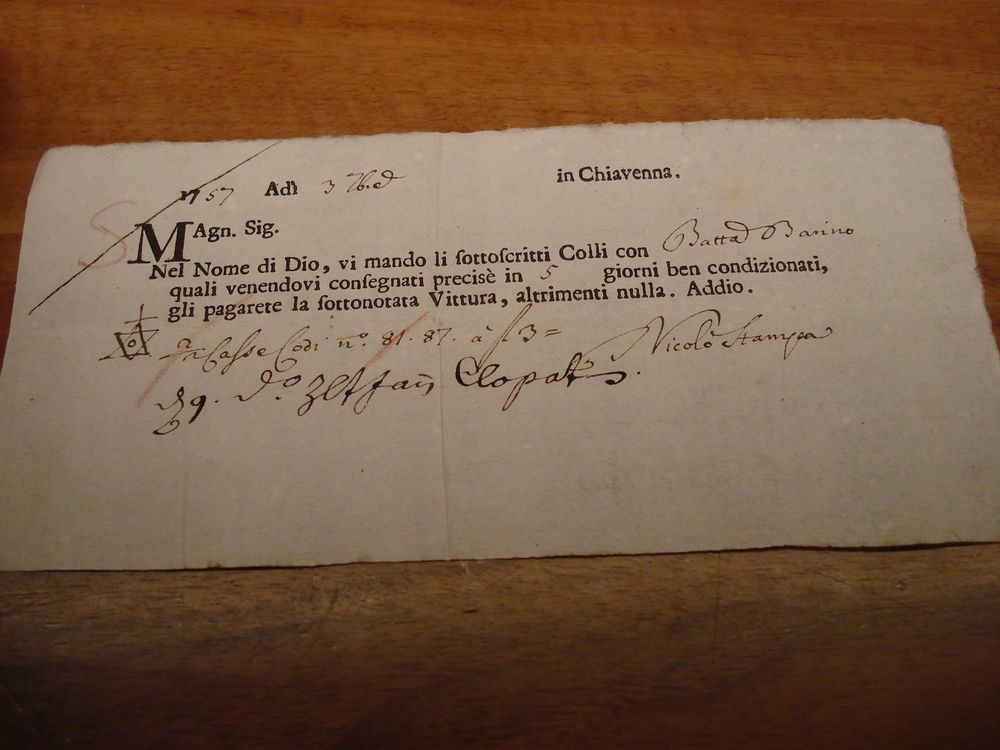 1757 Adì 3 7b.e in Chiavenna.
MAgn. Sig.
Nel Nome di Dio, vi mando li ſottoſcritti Colli con Batta Barino
quali venendovi conſegnati precisè in 5 giorni ben condizionati,
gli pagarete la ſottonotata Vittura, altrimenti nulla. Addio.
Casse Codi nº. 81. 87. à f 3 = Nicolò Stampa